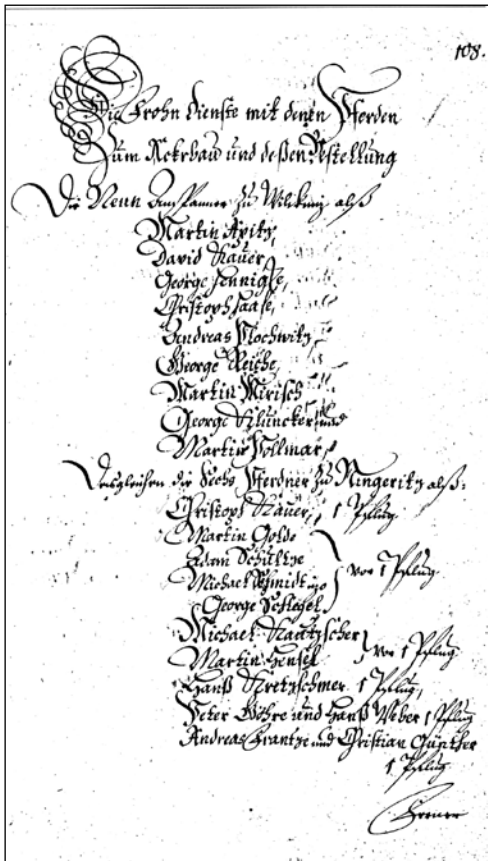 108.
Die Frohn Dienste mit denen Pferden
Zum Ackerbau und deßen Bestellung
Die Neun Anspanner zu Wilckniz alß
Martin Apitz,
David Kauer,
George Hennigke,
Christoph Haase,
Andreas Mochwitz,
George Reiche,
Martin Mirisch
George Kluncker und
Martin Vollmar,
Desgleichen die Sechs Pferdner zu Ringeritz alß:
Christoph Kauer, 1 Pflug
Martin Golde
Adam Schultze
Michael Schmidt und
George Schlegel
vor 1 Pflug
Michael Kautzscher
Martin Hensel
vor 1 Pflug
Hanß Kretzschmer 1 Pflug,
Peter Göhre und Hanß Weber 1 Pflug
Andreas Frantze und Christian Günther
1 Pflug
Ferner